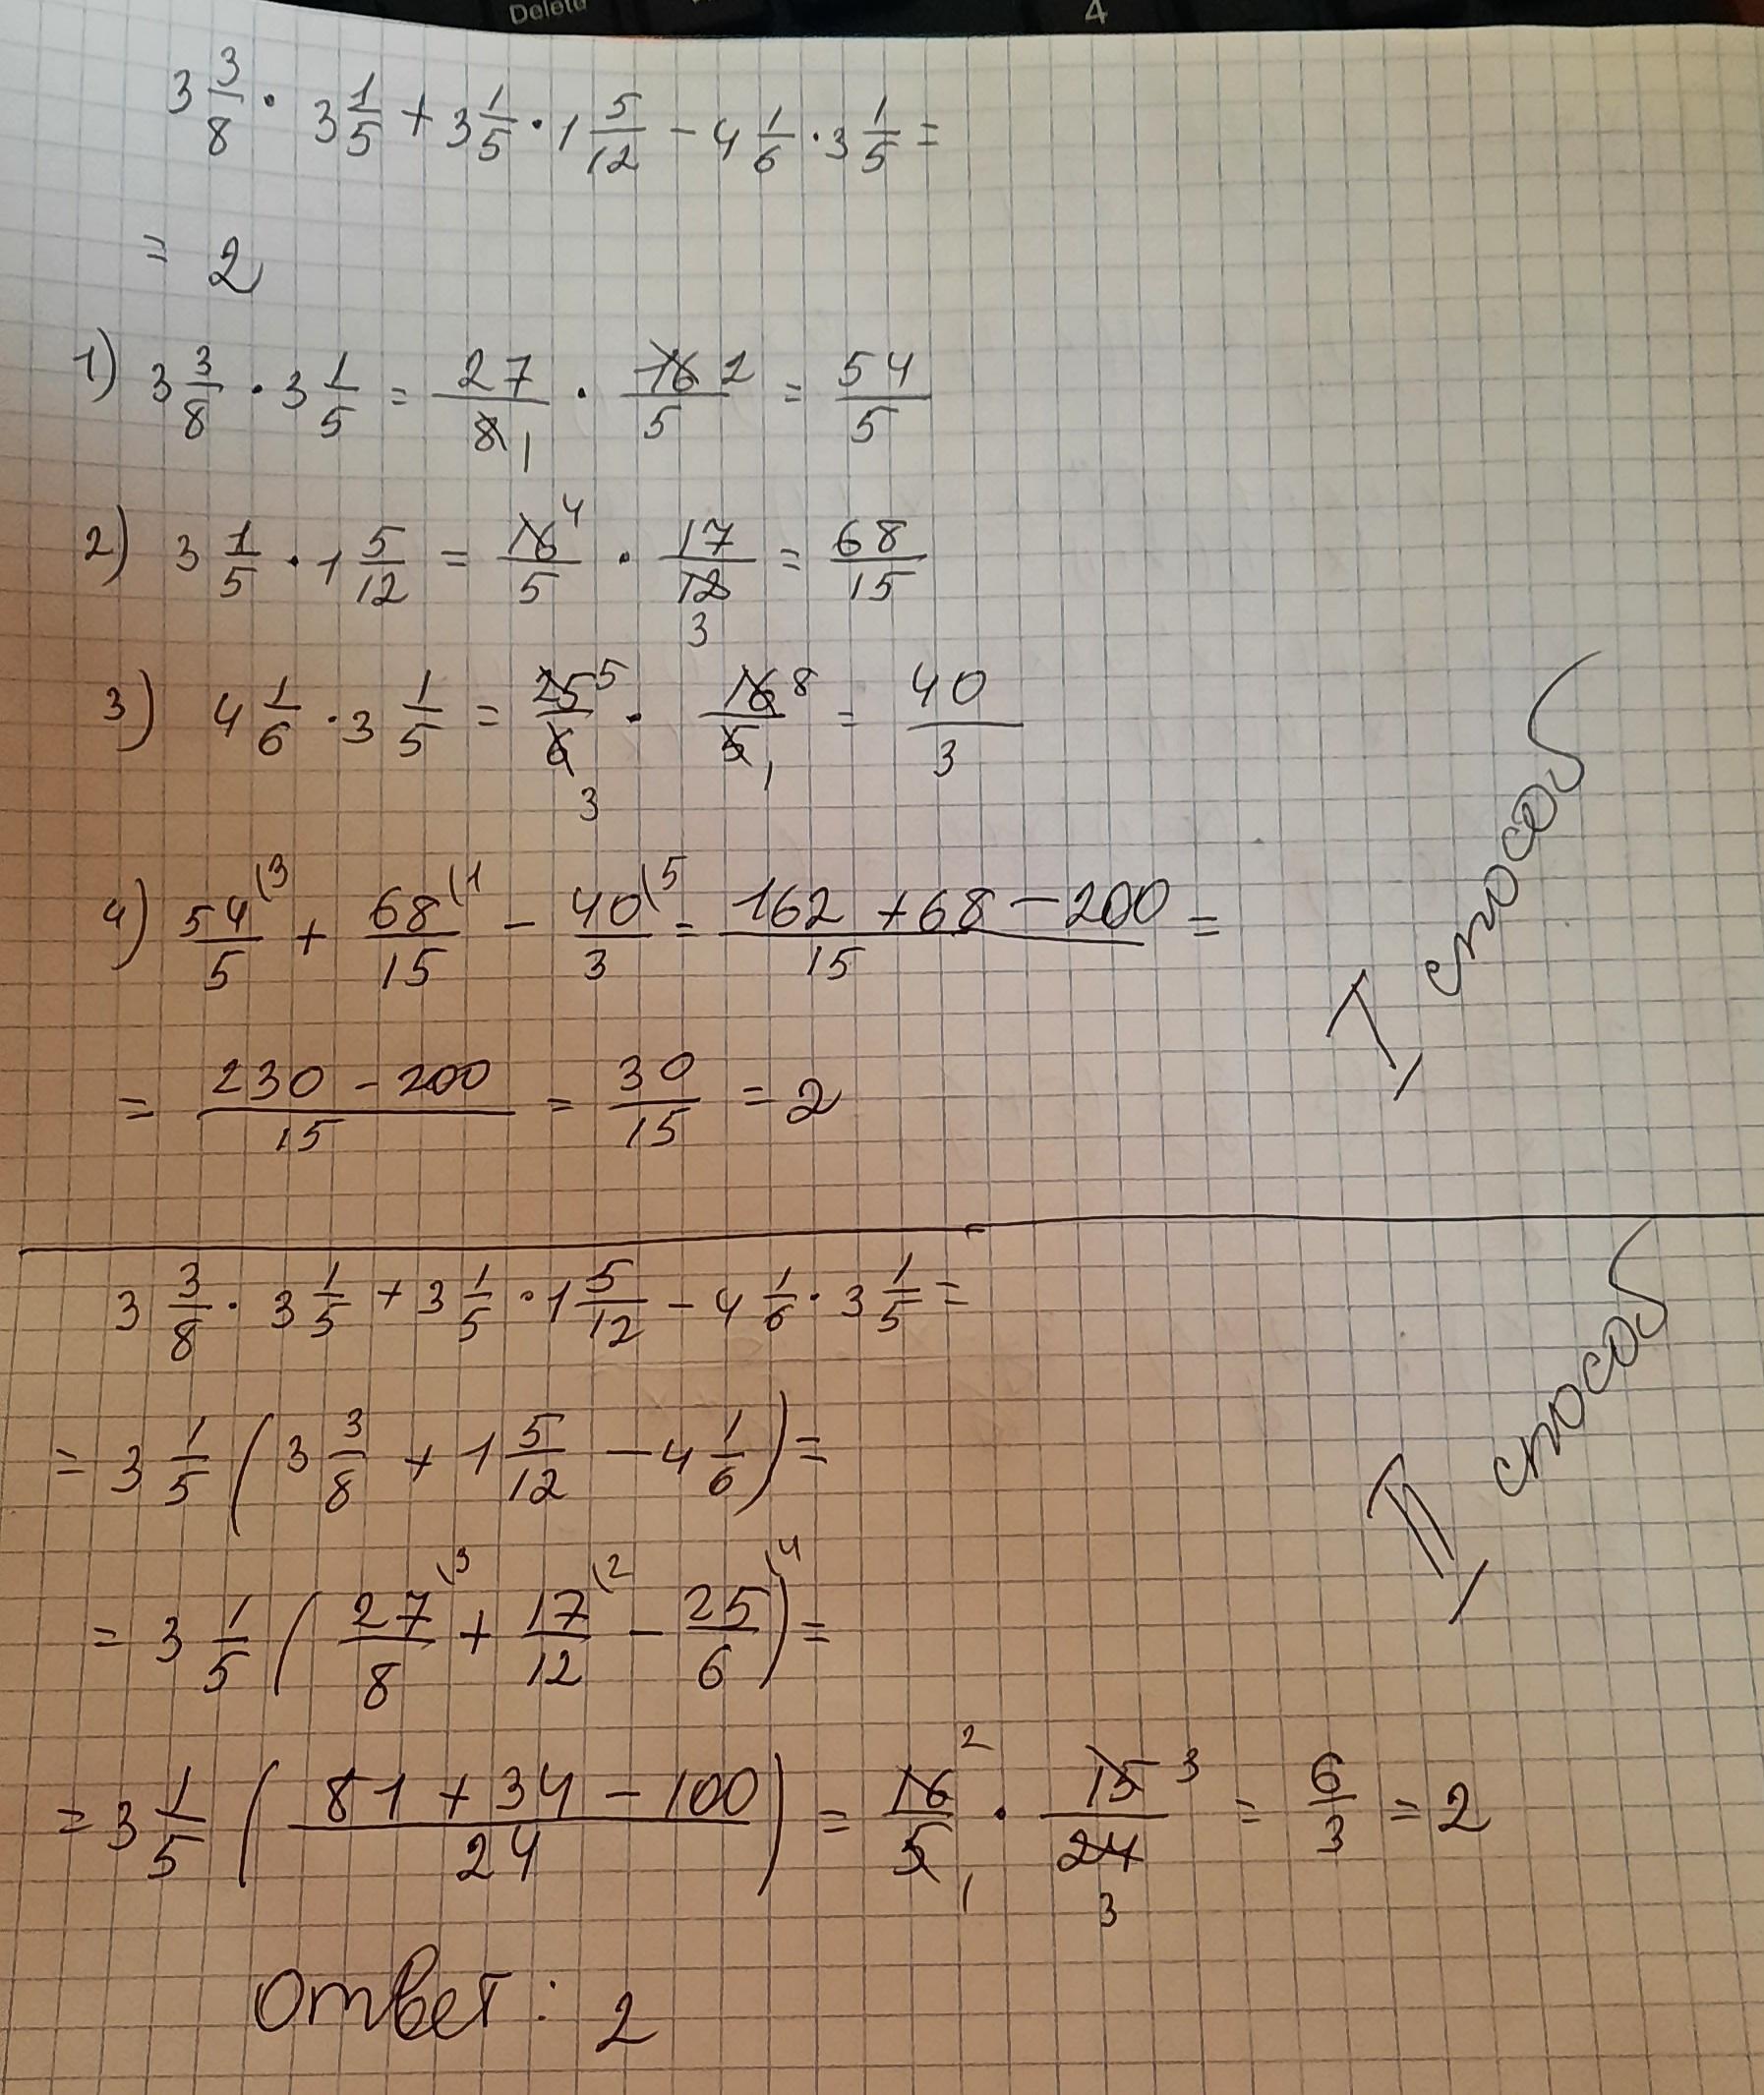 Delete 4
3 3/8 · 3 1/5 + 3 1/5 · 1 5/12 - 4 1/6 · 3 1/5 =
= 2
1) 3 3/8 · 3 1/5 = 27/8 1 · 16 2/5 = 54/5
2) 3 1/5 · 1 5/12 = 16 4/5 · 17/12 3 = 68/15
3) 4 1/6 · 3 1/5 = 25 5/6 3 · 16 8/5 1 = 40/3
4) 54 (3/5 + 68 (1/15 - 40 (5/3 = 162 + 68 - 200/15 =
= 230 - 200/15 = 30/15 = 2
I, способ
3 3/8 · 3 1/5 + 3 1/5 · 1 5/12 - 4 1/6 · 3 1/5 =
= 3 1/5 (3 3/8 + 1 5/12 - 4 1/6) =
= 3 1/5 (27 (3/8 + 17 (2/12 - 25 (4/6) =
= 3 1/5 (81 + 34 - 100/24) = 16 2/5 1 · 15 3/24 3 = 6/3 = 2
II, способ
Ответ: 2